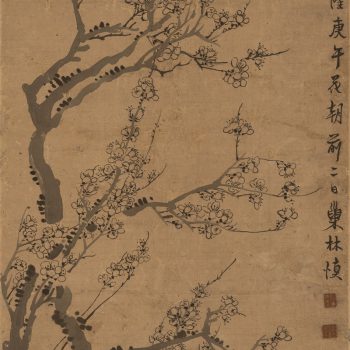 隆庚午花朝前二日巢林慎